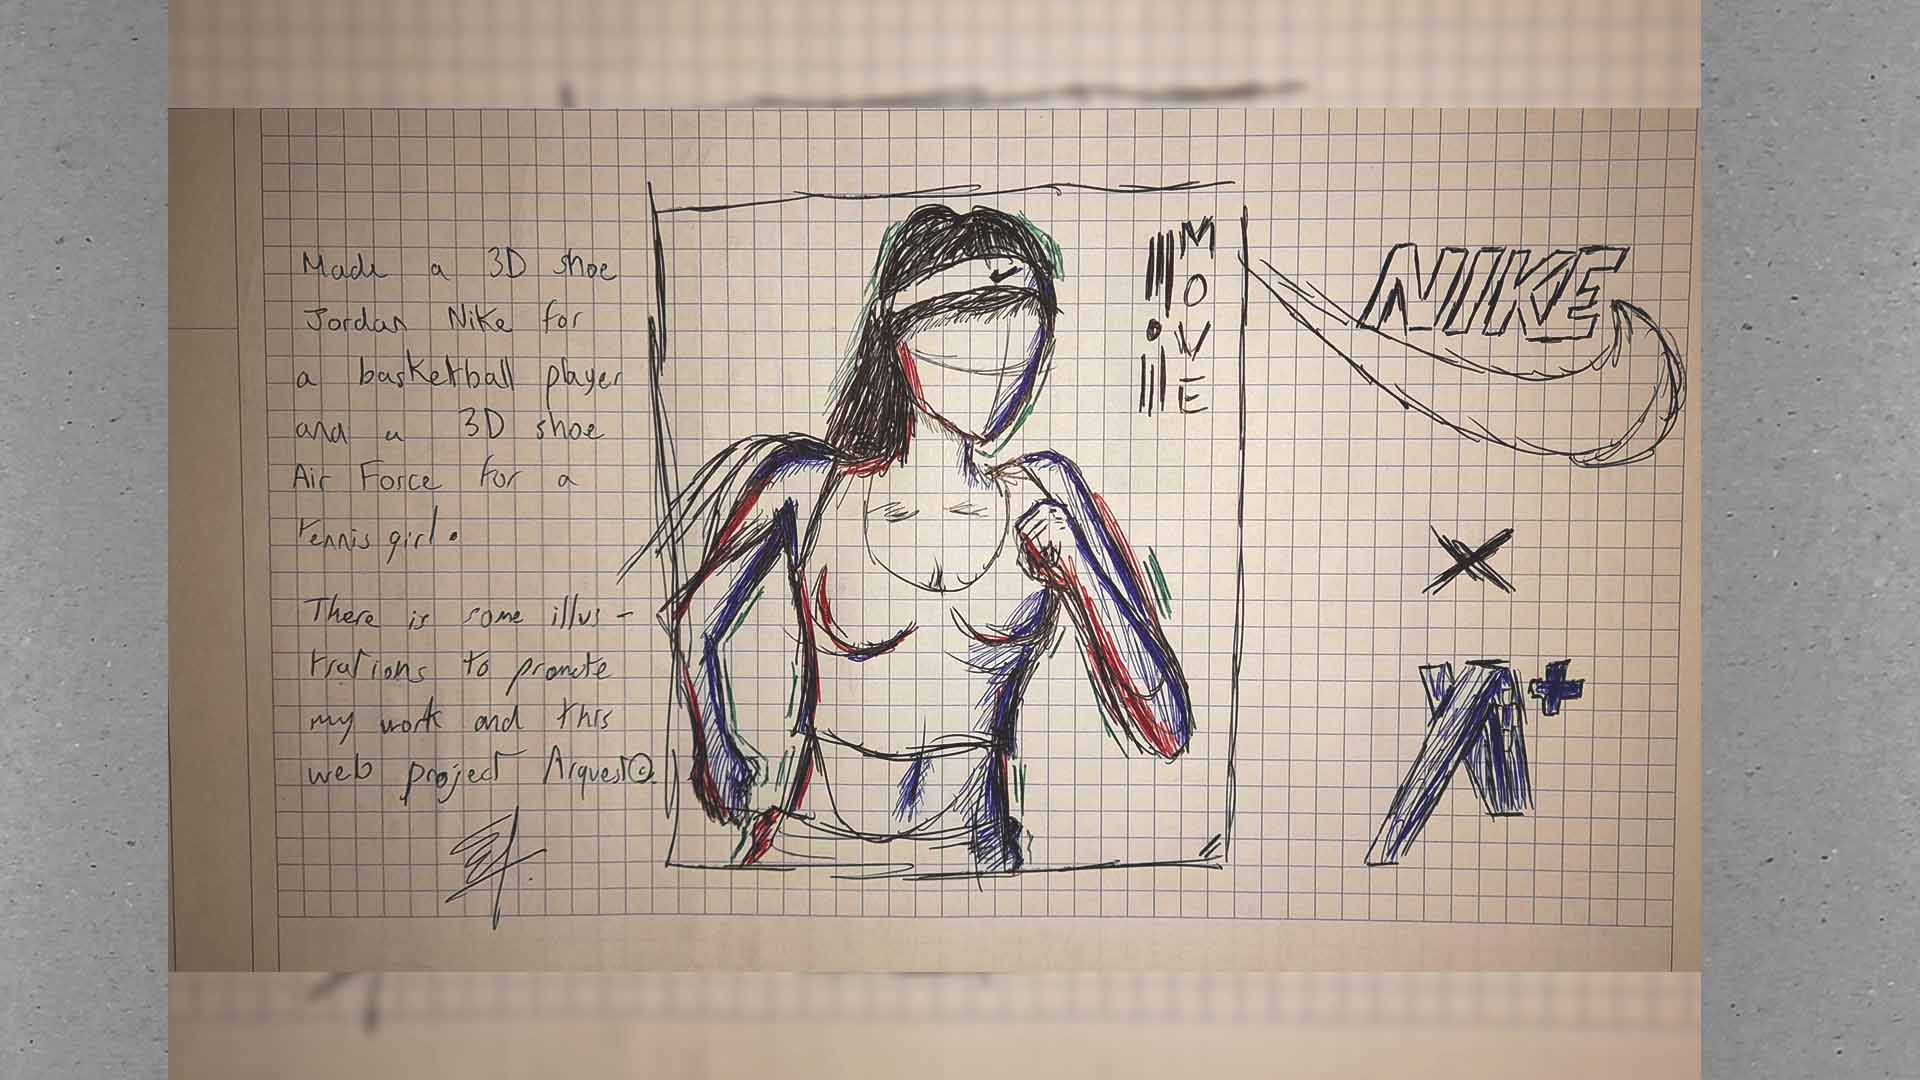 Made a 3D shoe
Jordan Nike for
a basketball player
and a 3D shoe
Air Force for a
tennis girl.
There is some illus-
trations to promote
my work and this
web project Arquest©.
MOVE
NIKE
X
A+